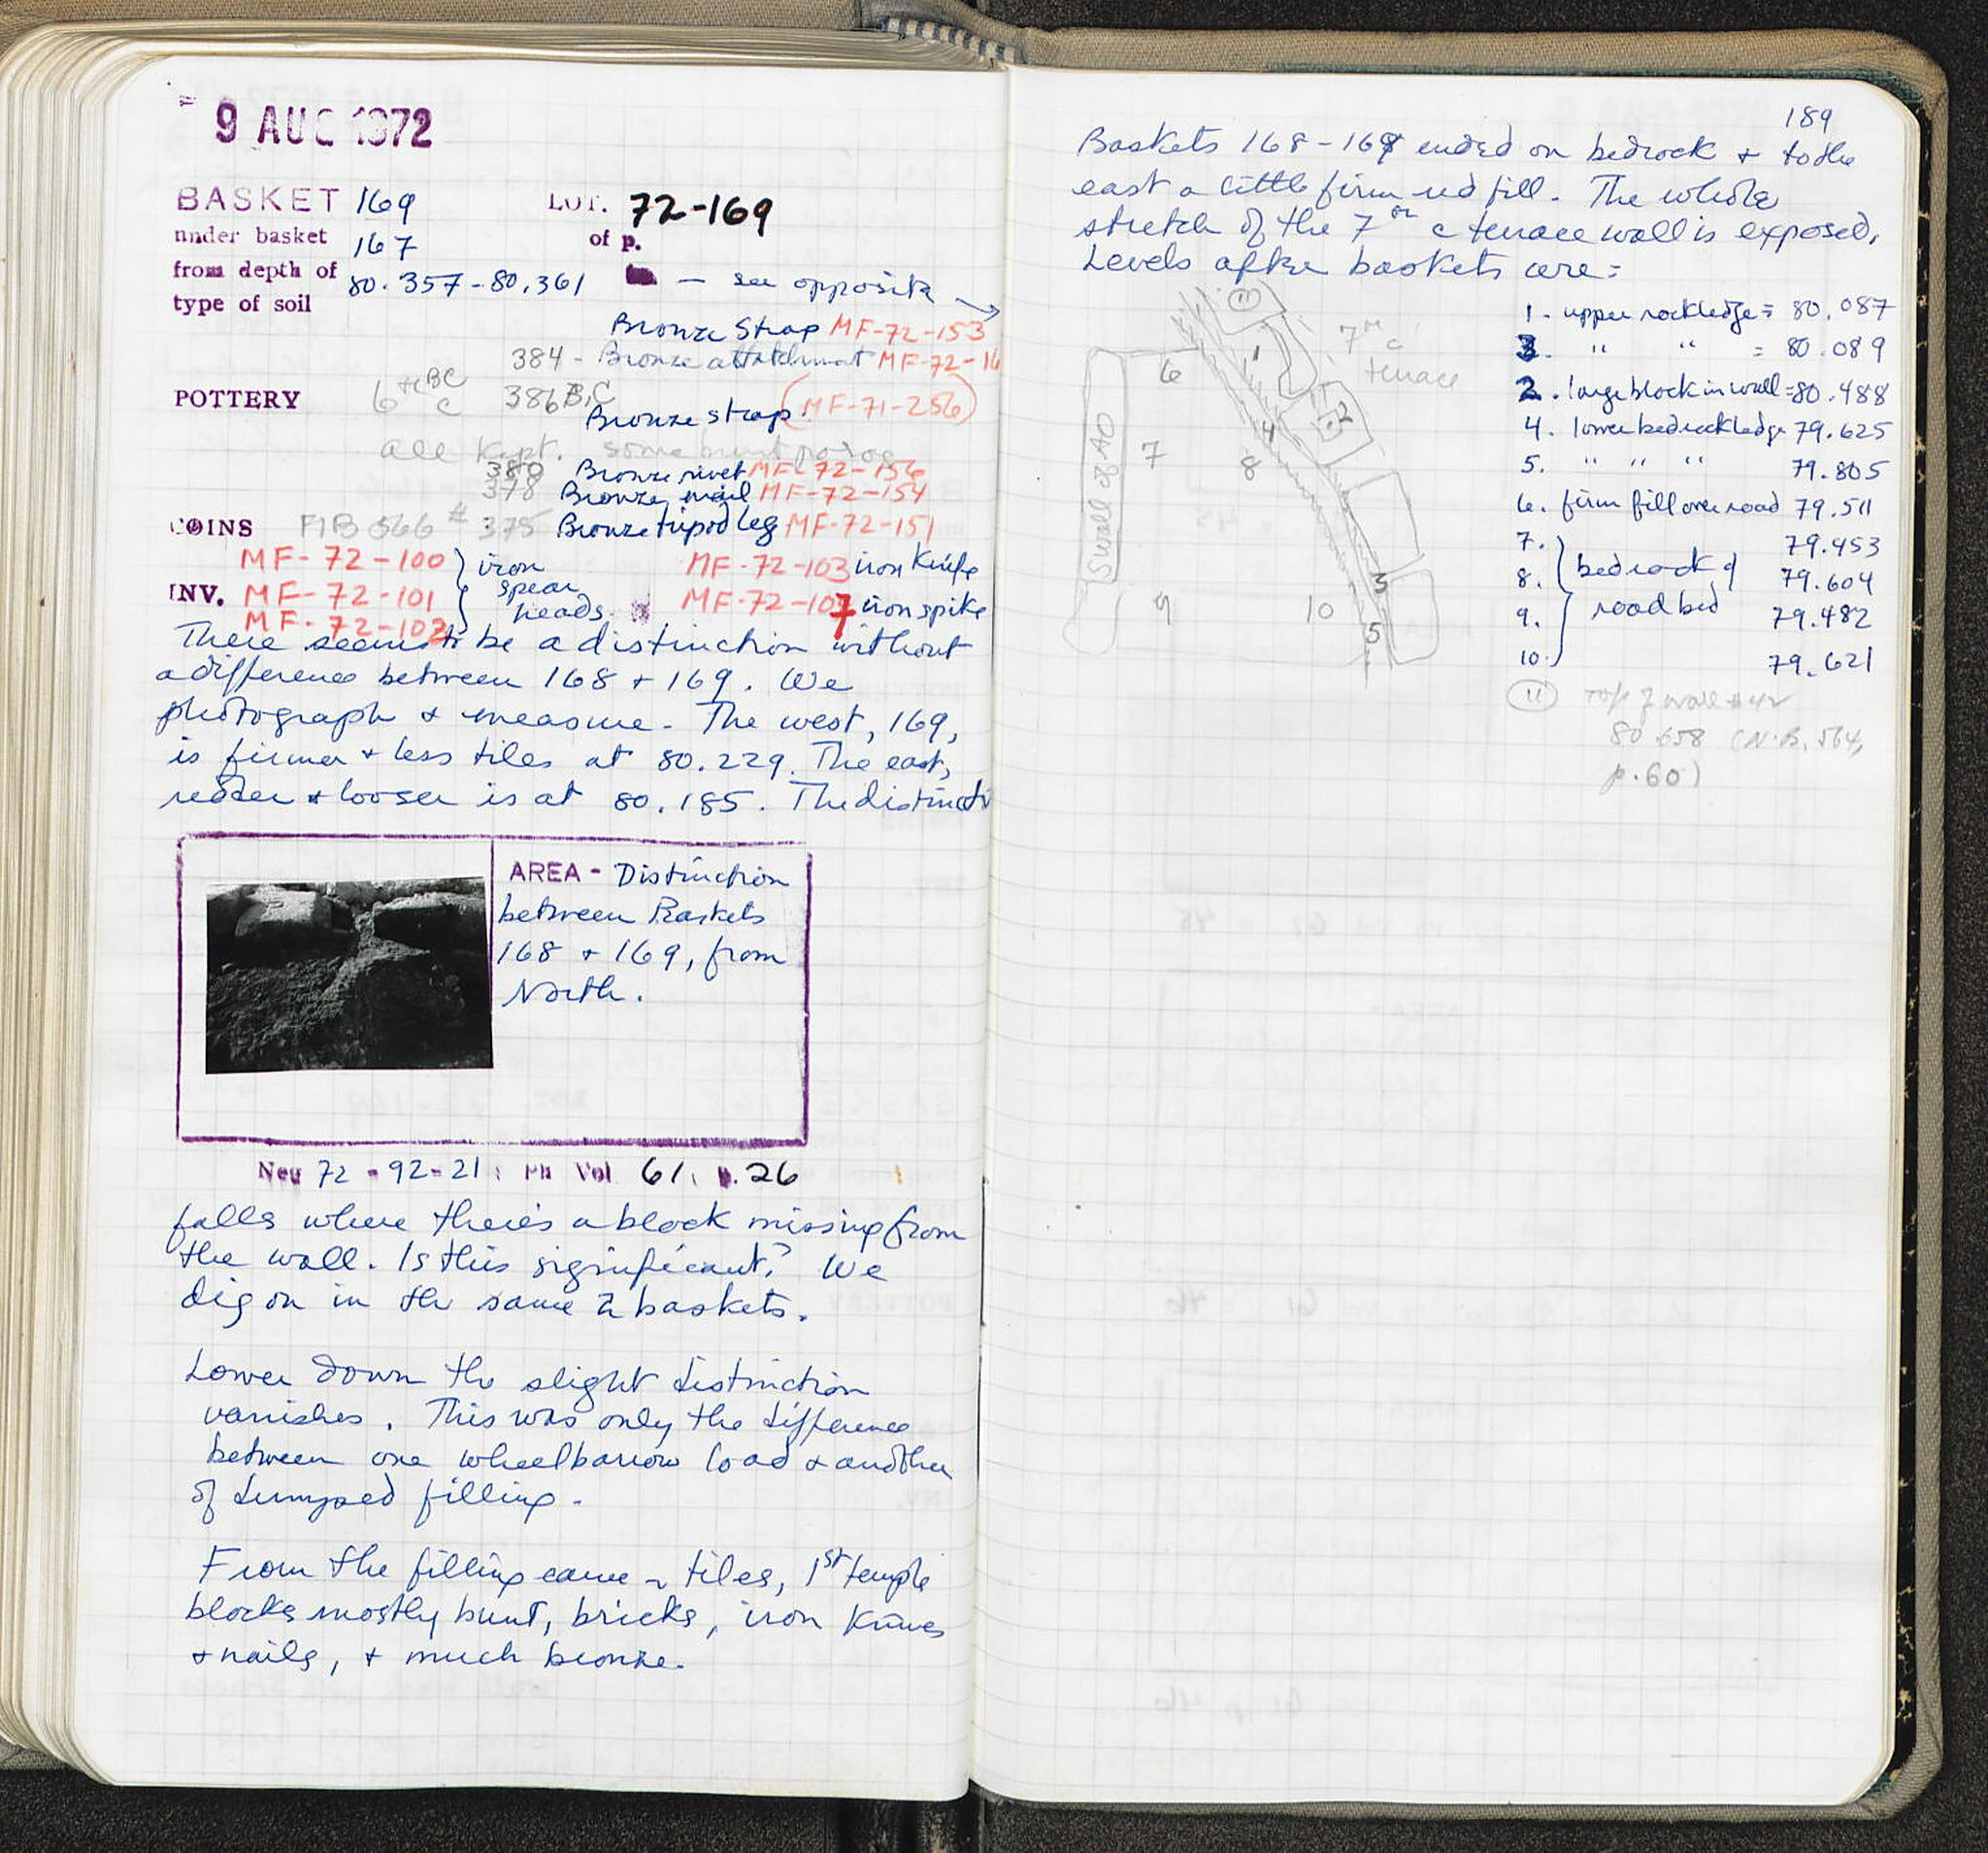 9 AUG 1972
BASKET 169 LOT. 72-169
under basket 167 of p.
from depth of 80.357-80.361 — see opposite →
type of soil
Bronze Strap MF-72-153
384 - Bronze attatchment MF-72-16
POTTERY 6th c BC 386 B,C (MF-71-256)
Bronze strap
all kept. some burnt
380 Bronze rivet MF-72-156
378 Bronze nail MF-72-154
COINS 375 Bronze tripod leg MF-72-151
MF-72-100 } iron MF-72-103 iron Knife
INV. MF-72-101 } spear MF-72-107 iron spike
MF-72-102 } heads
There seems to be a distinction without
a difference between 168 + 169. We
photograph + measure. The west, 169,
is firmer + less tiles at 80.229. The east,
redder + looser is at 80.185. The distincti
AREA - Distinction
between Baskets
168 + 169, from
North.
Neg 72-92-21; Ph Vol 61, p. 26
falls where there's a block missing from
the wall. Is this significant? We
dig on in the same 2 baskets.
Lower down the slight distinction
vanishes. This was only the difference
between one wheelbarrow load + another
of dumped filling.
From the filling came ~ tiles, 1st temple
blocks mostly burnt, bricks, iron knives
+ nails, + much bronze.
189
Baskets 168-169 ended on bedrock + to the
east a little firm red fill. The whole
stretch of the 7th c terrace wall is exposed.
Levels after baskets are:
1. upper rockledge = 80.087
3. " " = 80.089
2. large block in wall = 80.488
4. lower bedrock ledge 79.625
5. " " " 79.805
6. firm fill over road 79.511
7. } 79.453
8. } bedrock of 79.604
9. } road bed 79.482
10. } 79.621
11 Top of wall #42
80.658 (N.B. 564,
p. 60)
11
7th c
terrace
6
1
2
S wall of AO
4
7
8
3
9
10
5